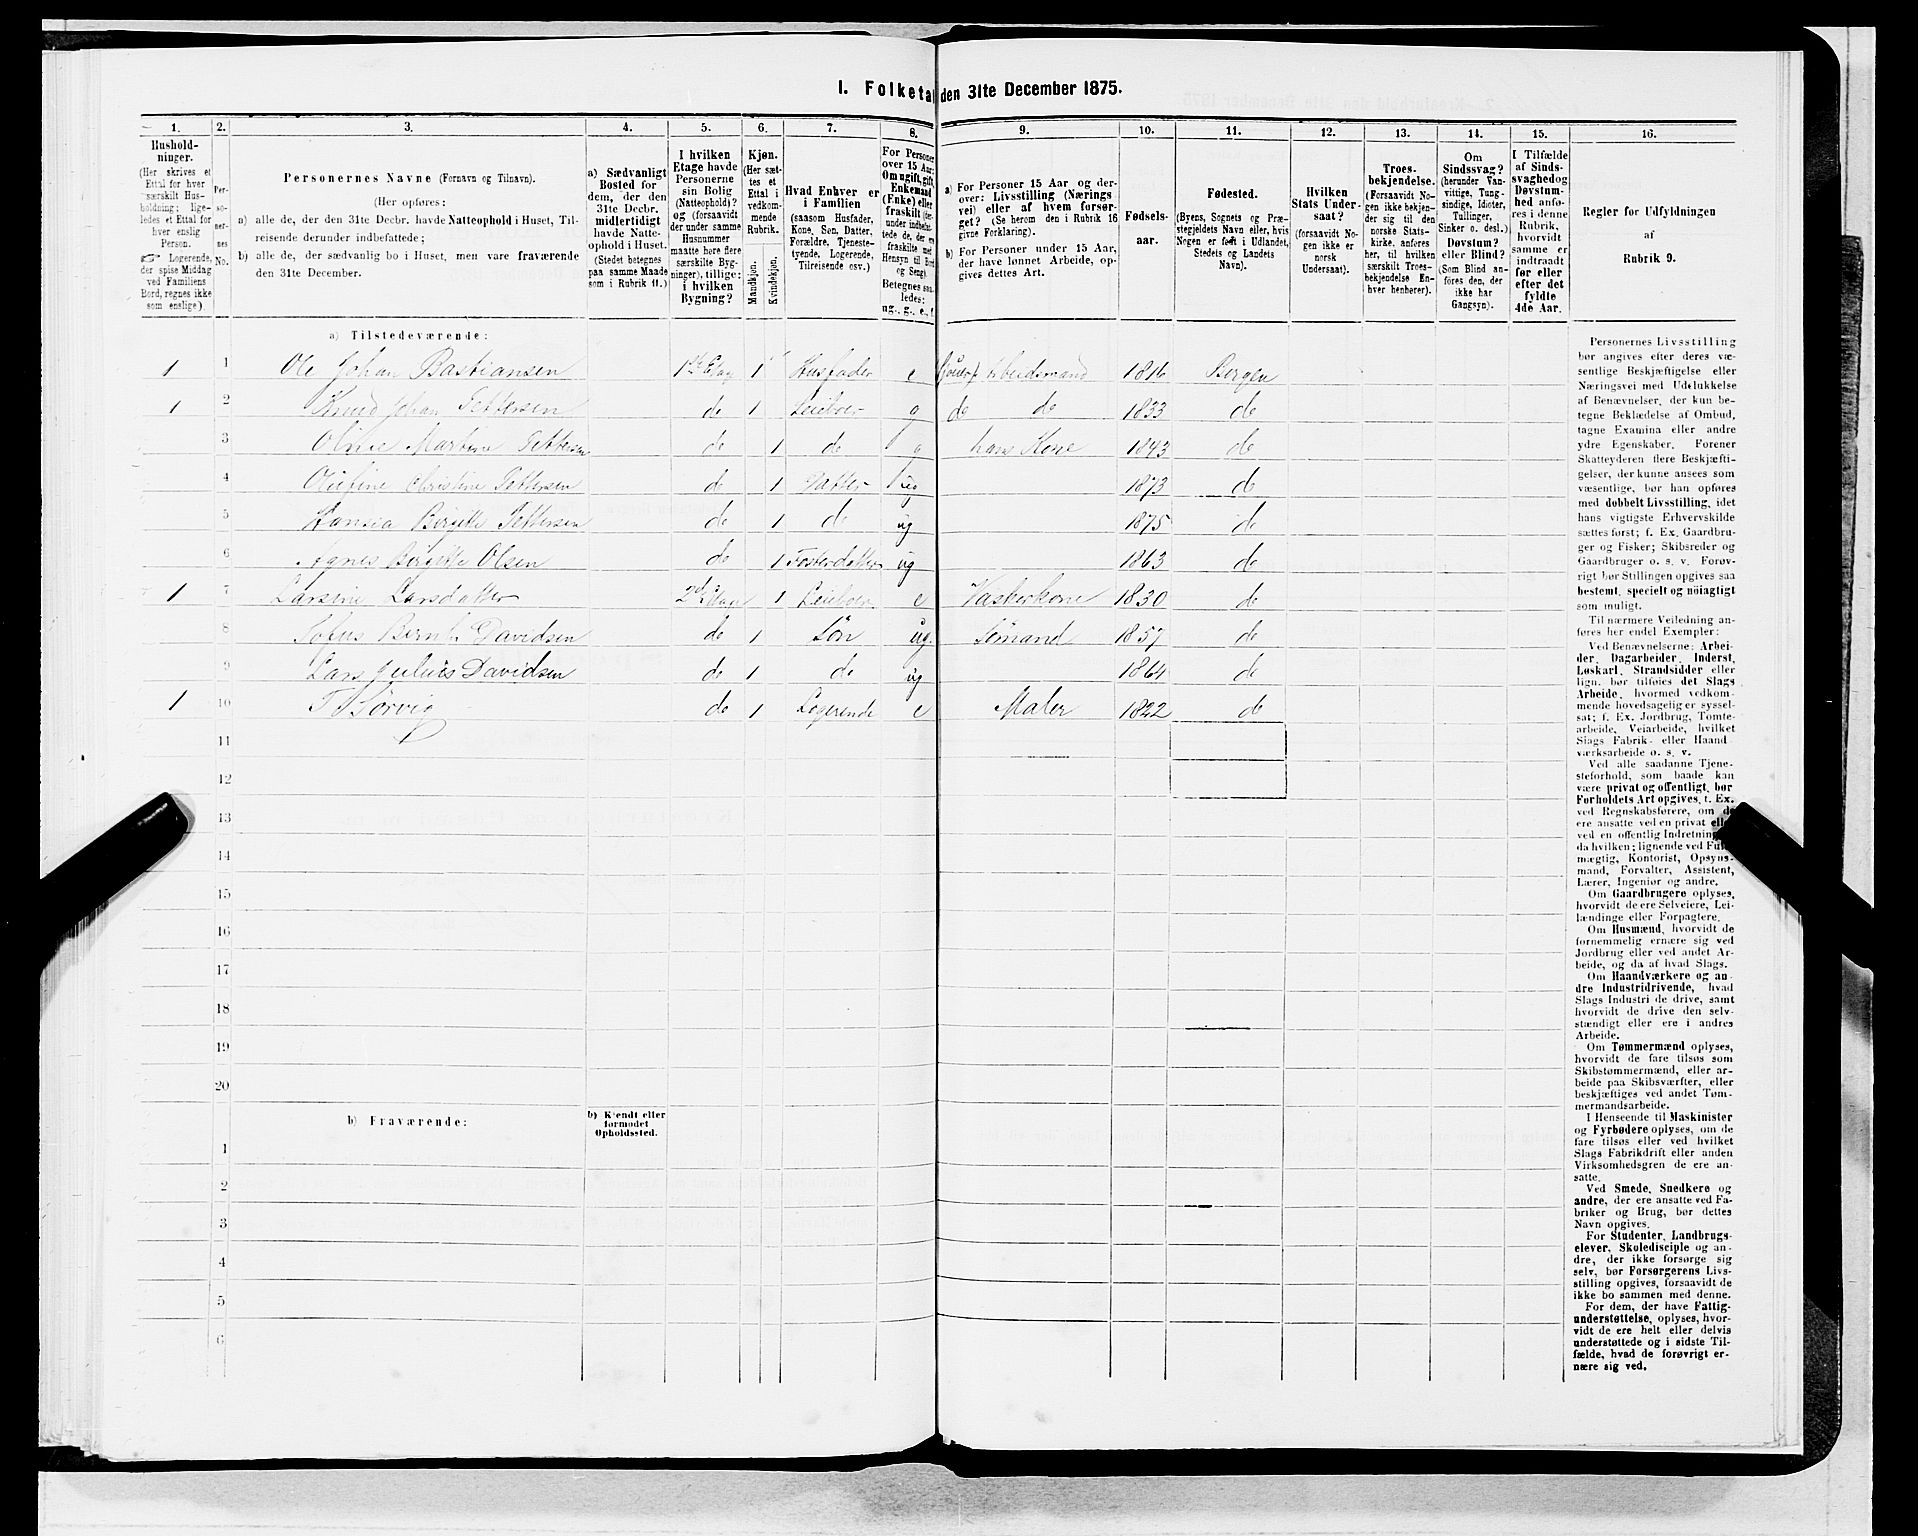 I. Folketal den 31te December 1875.
1. 2. 3. 4. 5. 6. 7. 8. 9. 10. 11. 12. 13. 14. 15. 16.
Hushold-
ninger.
(Her skrives et
Ettal for hver
særskilt Hus-
holdning; lige-
ledes et Ettal for
hver enslig
Person.
☞ Logerende,
der spise Middag
ved Familiens
Bord, regnes ikke
som enslige).
Per-
so-
ner-
nes
No.
Personernes Navne (Fornavn og Tilnavn).
(Her opføres:
a) alle de, der den 31te Decbr. havde Natteophold i Huset, Til-
reisende derunder indbefattede;
b) alle de, der sædvanlig bo i Huset, men vare fraværende
den 31te December.
a) Sædvanligt
Bosted for
dem, der den
31te Decbr.
midlertidigt
havde Natte-
ophold i Huset.
(Stedet betegnes
paa samme Maade
som i Rubrik 11.)
I hvilken
Etage havde
Personerne
sin Bolig
(Natteophold)?
og (forsaavidt
der under samme
Husnummer
maatte høre flere
særskilte Byg-
ninger), tillige:
i hvilken
Bygning?
Kjøn.
(Her sæt-
tes et
Ettal i
vedkom-
mende
Rubrik.
Mandkjøn.
Kvindekjøn.
Hvad Enhver er
i Familien
(saasom Husfader,
Kone, Søn, Datter,
Forældre, Tjeneste-
tyende, Logerende,
Tilreisende osv.)
For Personer
over 15 Aar:
Om ugift, gift,
Enkemand
(Enke) eller
fraskilt (der-
under indbefat-
tede de, der ere
fraskilte med
Hensyn til Bord
og Seng).
Betegnes saa-
ledes:
ug., g., e., f.
a) For Personer 15 Aar og der-
over: Livsstilling (Nærings-
vei) eller af hvem forsør-
get? (Se herom den i Rubrik 16
givne Forklaring).
b) For Personer under 15 Aar,
der have lønnet Arbeide, op-
gives dettes Art.
Fødsels-
aar.
Fødested.
(Byens, Sognets og Præ-
stegjeldets Navn eller, hvis
Nogen er født i Udlandet,
Stedets og Landets
Navn).
Hvilken
Stats Under-
saat?
(forsaavidt No-
gen ikke er
norsk
Undersaat).
Troes-
bekjendelse.
(Forsaavidt No-
gen ikke bekjen-
der sig til den
norske Stats-
kirke, anføres
her, til hvilken
særskilt Troes-
bekjendelse En-
hver henhører).
Om
Sindssvag?
(herunder Van-
vittige, Tung-
sindige, Idioter,
Tullinger,
Sinker o. desl.)
Døvstum?
eller Blind?
(Som Blind an-
føres den, der
ikke har
Gangsyn).
I Tilfælde
af Sinds-
svaghed og
Døvstum-
hed anfø-
res i denne
Rubrik,
hvorvidt
samme er
indtraadt
før eller
efter det
fyldte
4de Aar.
Regler for Udfyldningen
af
Rubrik 9.
a) Tilstedeværende:
1 1 Ole Johan Bastiansen 1ste Etag 1 Husfader e Arbeidsmand 1816 Bergen
1 2 Knud Johan Pettersen do 1 Leieboer g do do 1833 do
3 Oline Martine Pettersen do 1 do g hans Kone 1843 do
4 Olufine Christine Pettersen do 1 Datter ug 1873 do
5 Hansia Birgitte Pettersen do 1 do ug 1875 do
6 Agnes Birgitte Olsen do 1 Fosterdatter ug 1863 do
1 7 Larsine Larsdatter 2d Etage 1 Leieboer e Vaskerkone 1830 do
8 Sofus Bernh. Davidsen do 1 Søn ug. Sømand 1857 do
9 Lars Julius Davidsen do 1 do ug 1864 do
1 10 Sørvig do 1 Logerende e Maler 1822 do
11
12
13
14
15
16
17
18
19
20
b) Fraværende:
b) Kjendt eller
formodet
Opholdssted.
1
2
3
4
5
6
Personernes Livsstilling
bør angives efter deres væ-
sentlige Beskjæftigelse eller
Næringsvei med Udelukkelse
af Benævnelser, der kun be-
tegne Beklædelse af Ombud,
tagne Examina eller andre
ydre Egenskaber. Forener
Skatteyderen flere Beskjæfti-
gelser, der kunne ansees som
væsentlige, bør han opføres
med dobbelt Livsstilling, idet
hans vigtigste Erhvervskilde
sættes først; f. Ex. Gaardbru-
ger og Fisker; Skibsreder og
Gaardbruger o. s. v. Forøv-
rigt bør Stillingen opgives saa
bestemt, specielt og nöiagtigt
som muligt.
Til nærmere Veiledning an-
føres her endel Exempler:
Ved Benævnelserne: Arbei-
der, Dagarbeider, Inderst,
Løskarl, Strandsidder eller
lign. bør tilføies det Slags
Arbeide, hvormed vedkom-
mende hovedsagelig er syssel-
sat; f. Ex. Jordbrug, Tomte-
arbeide, Veiarbeide, hvilket
Slags Fabrik- eller Haand-
værksarbeide o. s. v.
Ved alle saadanne Tjene-
steforhold, som baade kan
være privat og offentligt, bør
Forholdets Art opgives, f. Ex.
ved Regnskabsførere, om de
ere ansatte ved en privat eller
ved en offentlig Indretning
da hvilken; lignende ved Fuld-
mægtig, Kontorist, Opsyns-
mand, Forvalter, Assistent,
Lærer, Ingeniør og andre.
Om Gaardbrugere oplyses,
hvorvidt de ere Selveiere, Lei-
lændinge eller Forpagtere.
Om Husmænd, hvorvidt de
fornemmelig ernære sig ved
Jordbrug eller ved andet Ar-
beide, og da af hvad Slags.
Om Haandværkere og an-
dre Industridrivende, hvad
Slags Industri de drive, samt
hvorvidt de drive den selv-
stændigt eller ere i andres
Arbeide.
Om Tømmermænd oplyses,
hvorvidt de fare tilsøs som
Skibstømmermænd, eller ar-
beide paa Skibsværfter, eller
beskjæftiges ved andet Tøm-
mermandsarbeide.
I Henseende til Maskinister
og Fyrbødere oplyses, om de
fare tilsøs eller ved hvilket
Slags Fabrikdrift eller anden
Virksomhedsgren de ere an-
satte.
Ved Smede, Snedkere og
andre, der ere ansatte ved Fa-
briker og Brug, bør dettes
Navn opgives.
For Studenter, Landbrugs-
elever, Skoledisciple og an-
dre, der ikke forsørge sig
selv, bør Forsørgerens Livs-
stilling opgives, forsaavidt de
ikke bo sammen med denne.
For dem, der have Fattig-
understøttelse, oplyses, hvor-
vidt de ere helt eller delvis
understøttede og i sidste Til-
fælde, hvad de forøvrigt er-
nære sig ved.